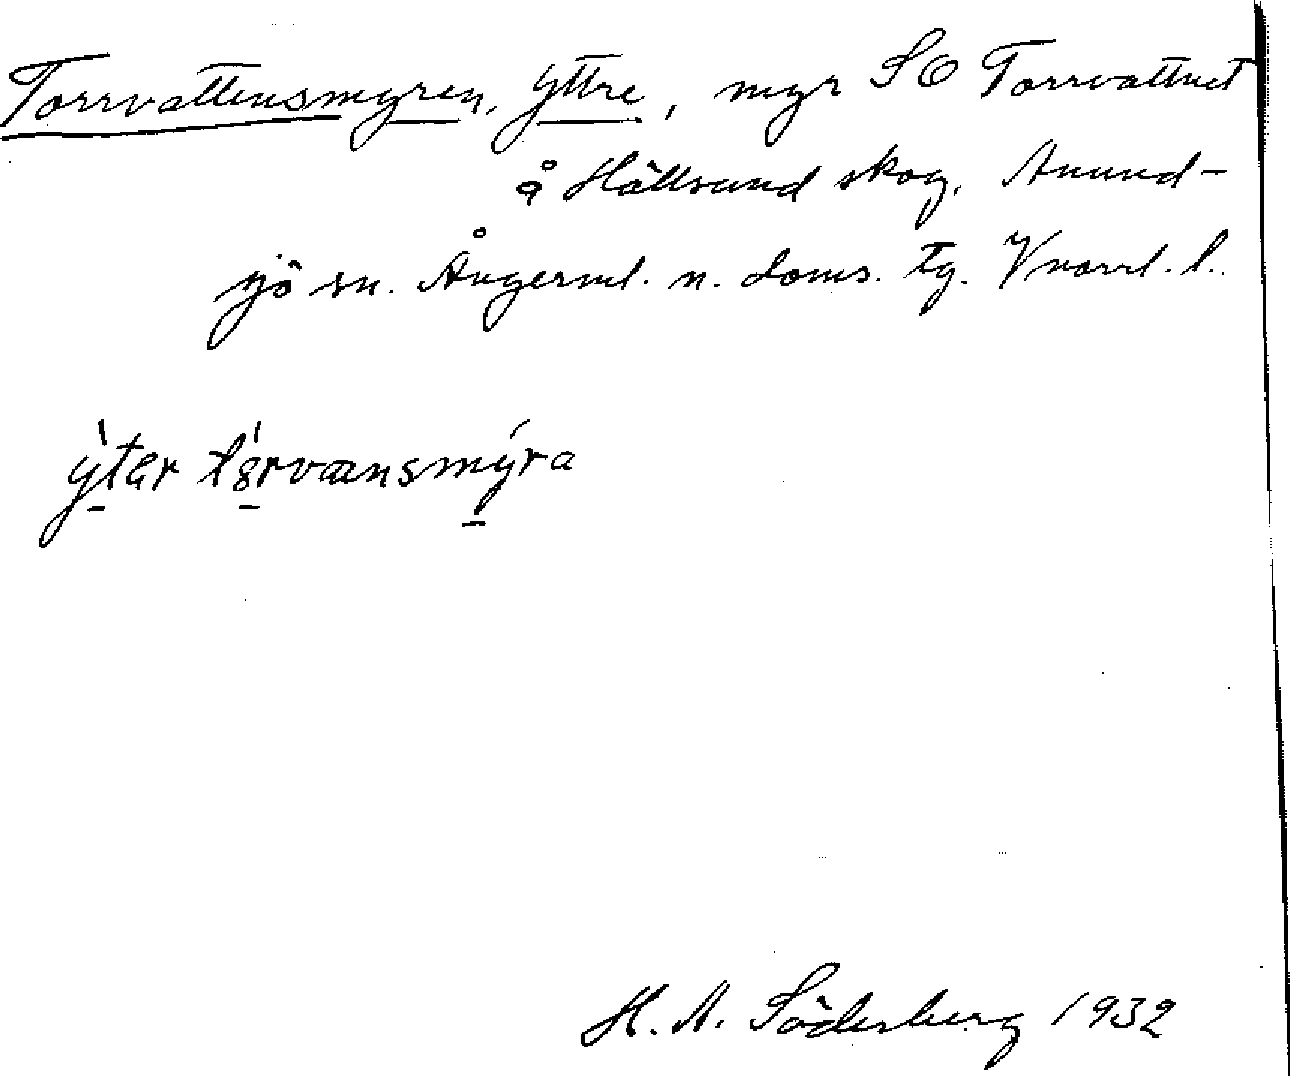 Torrvattensmyren, Yttre, myr SO Torrvattnet
å Hällvand skog, Anund-
sjö sn. Ångerml. n. doms. tg. Vnorrl. l.
yter tørvansmyra
H. A. Söderberg 1932